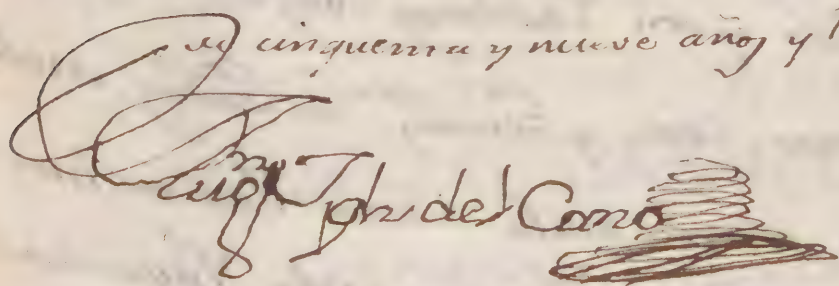 de cinquenta y nueve años y
Jph del Cano